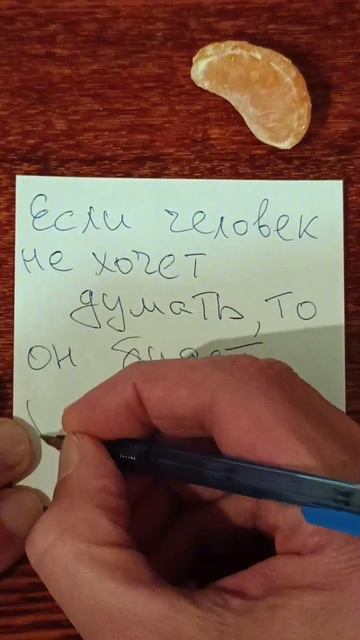 Если человек
не хочет
думать, то
он